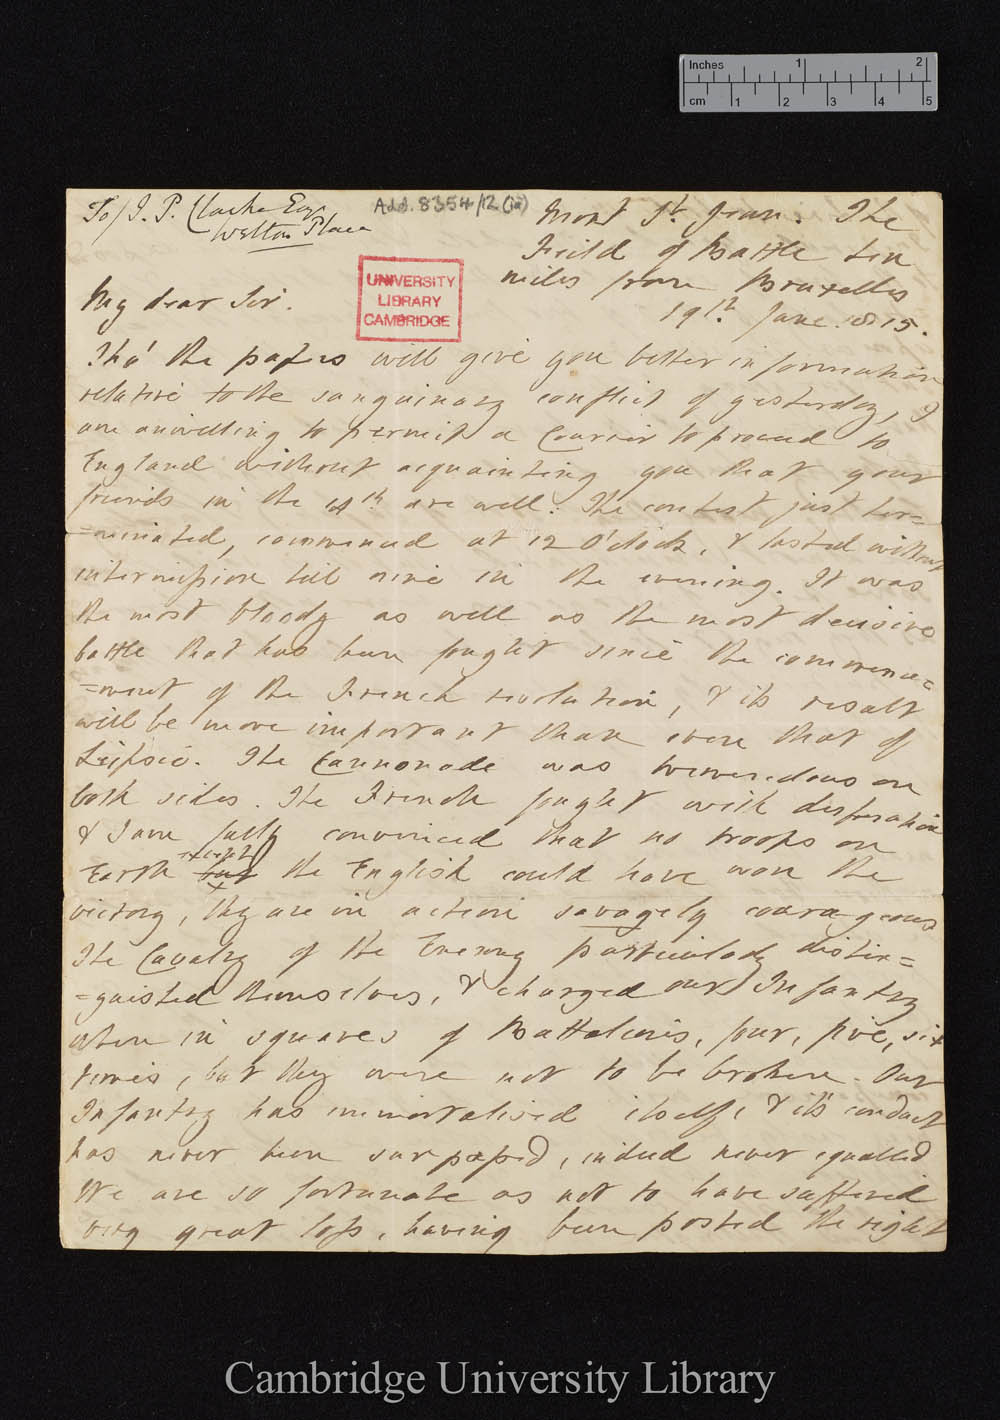 Inches 1 2
cm 1 2 3 4 5
To/ J. P. Clarke Esqr
Welton Place
Add. 8354/12 (ia)
Mont St. Jean. The
Feild of Battle ten
miles from Bruxelles
19th. June. 1815.
UNIVERSITY
LIBRARY
CAMBRIDGE
My dear Sir.
Tho' the papers will give you better information
relative to the sanguinary conflict of yesterday, I
am unwilling to permit a Courier to proceed to
England without acquainting you that your
friends in the 14th are well. The contest just ter=
=minated, commenced at 12 O'clock, & lasted without
intermission till nine in the evening. It was
the most bloody as well as the most decisive
battle that has been fought since the commence=
=ment of the French revolution, & its result
will be more important than even that of
Leipsic. The Cannonade was tremendous on
both sides. The French fought with desperation
& I am fully convinced that no troops on
Earth except the English could have won the
victory, they are in action savagely courageous
The Cavalry of the Enemy particularly distin=
=guished themselves, & charged our Infantry
when in squares of Battalions, four, five, six
times, but they were not to be broken. Our
Infantry has immortalised itself, & its conduct
has never been surpassed, indeed never equalled
We are so fortunate as not to have suffered
very great loss, having been posted the right
Cambridge University Library